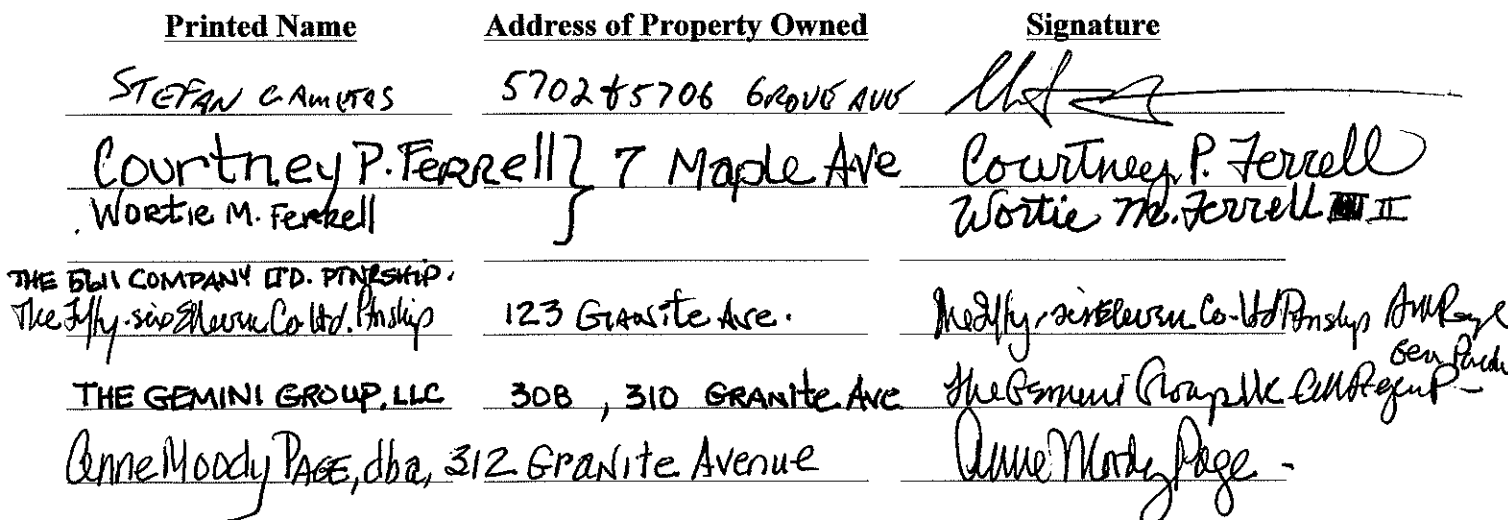 Printed Name Address of Property Owned Signature
STEFAN CAMETAS 5702 & 5706 GROVE AVE
Courtney P. Ferrell } 7 Maple Ave Courtney P. Ferrell
Wortie M. Ferrell Wortie M. Ferrell II
THE 5611 COMPANY LTD. PTNRSHIP.
The Fifty-six Eleven Co Ltd. Ptnship 123 Granite Ave. The Fifty-six Eleven Co-Ltd Ptnship
THE GEMINI GROUP, LLC 308, 310 GRANITE Ave The Gemini Group llc
Anne Moody PAGE, dba, 312 Granite Avenue Anne Moody Page -